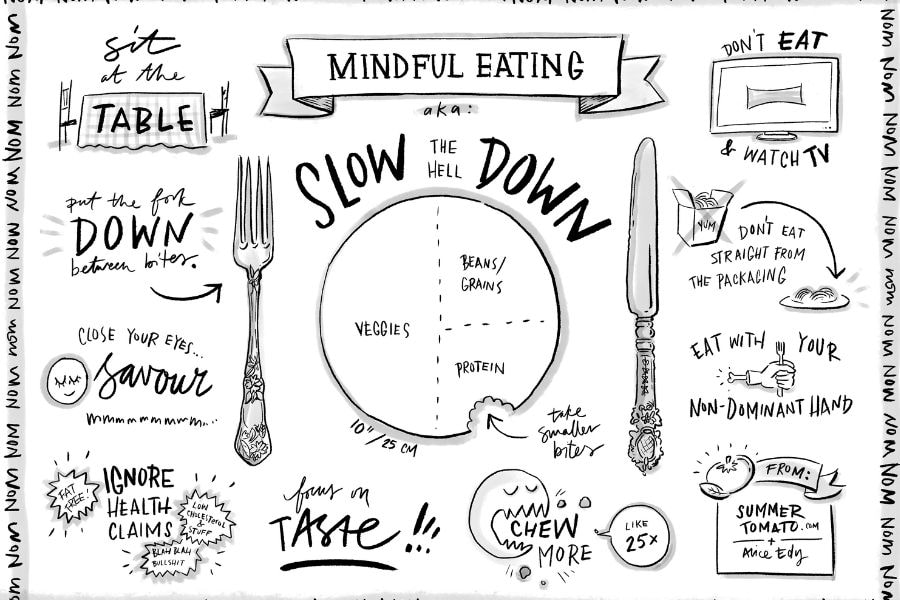 sit
at the
TABLE
MINDFUL EATING
aka:
SLOW THE HELL DOWN
DON'T EAT
& WATCH TV
put the fork
DOWN
between bites.
VEGGIES
BEANS/
GRAINS
PROTEIN
10"/25 CM
take
smaller
bites
YUM
DON'T EAT
STRAIGHT FROM
THE PACKAGING
CLOSE YOUR EYES...
savour
mmmmmmmmm...
EAT WITH YOUR
NON-DOMINANT HAND
FAT
FREE!
IGNORE
HEALTH
CLAIMS
LOW
CHOLESTEROL
&
STUFF
BLAH BLAH
BULLSHIT
focus on
TASTE!!!
CHEW
MORE
LIKE
25x
FROM:
SUMMER
TOMATO.COM
+
Alice Edy
NOM NOM NOM NOM NOM NOM NOM NOM NOM NOM
NOM NOM NOM NOM NOM NOM NOM NOM NOM NOM